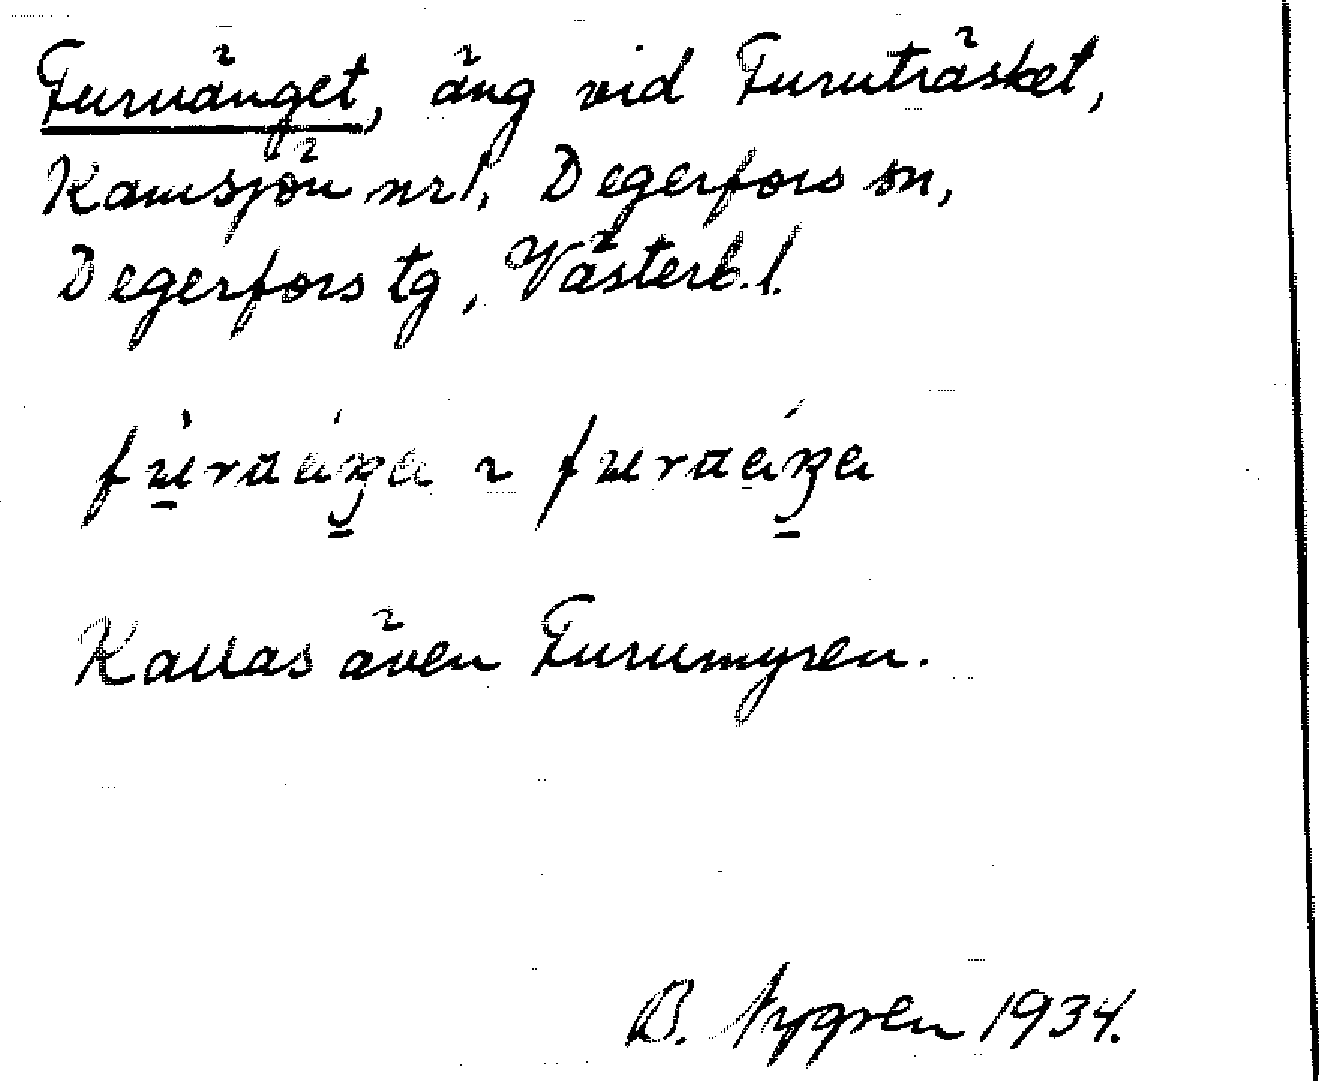 Furuänget, äng vid Furuträsket,
Kamsjön nr 1, Degerfors sn,
Degerfors tg, Västerb. l.
Kallas även Furumyren.
B. Nygren 1934.